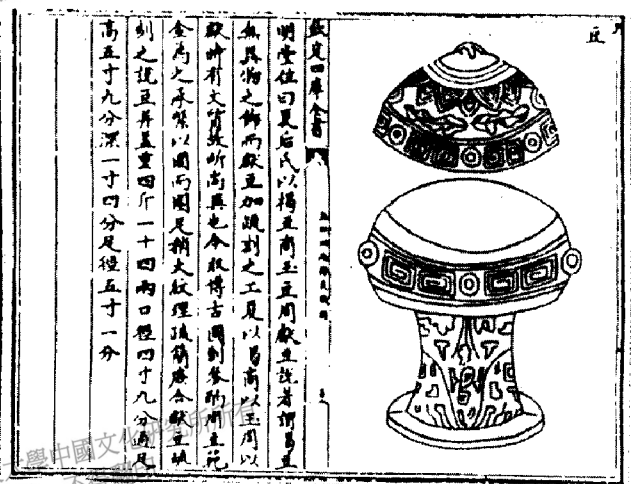 豆
欽定四庫全書
明堂位曰夏后氏以楬豆商玉豆周獻豆說者謂楬豆
無異物之飾而獻豆加疏刻之工夏以楬商以玉周以
獻時有文質故所尚異也今取博古圖制參酌用立範
金為之承槃以圓而圜足稍大紋理疏簡廣合獻豆疏
刻之說豆并蓋重四斤一十四兩口徑四寸九分通足
高五寸九分深一寸四分足徑五寸一分
大學中國文化研究所所有